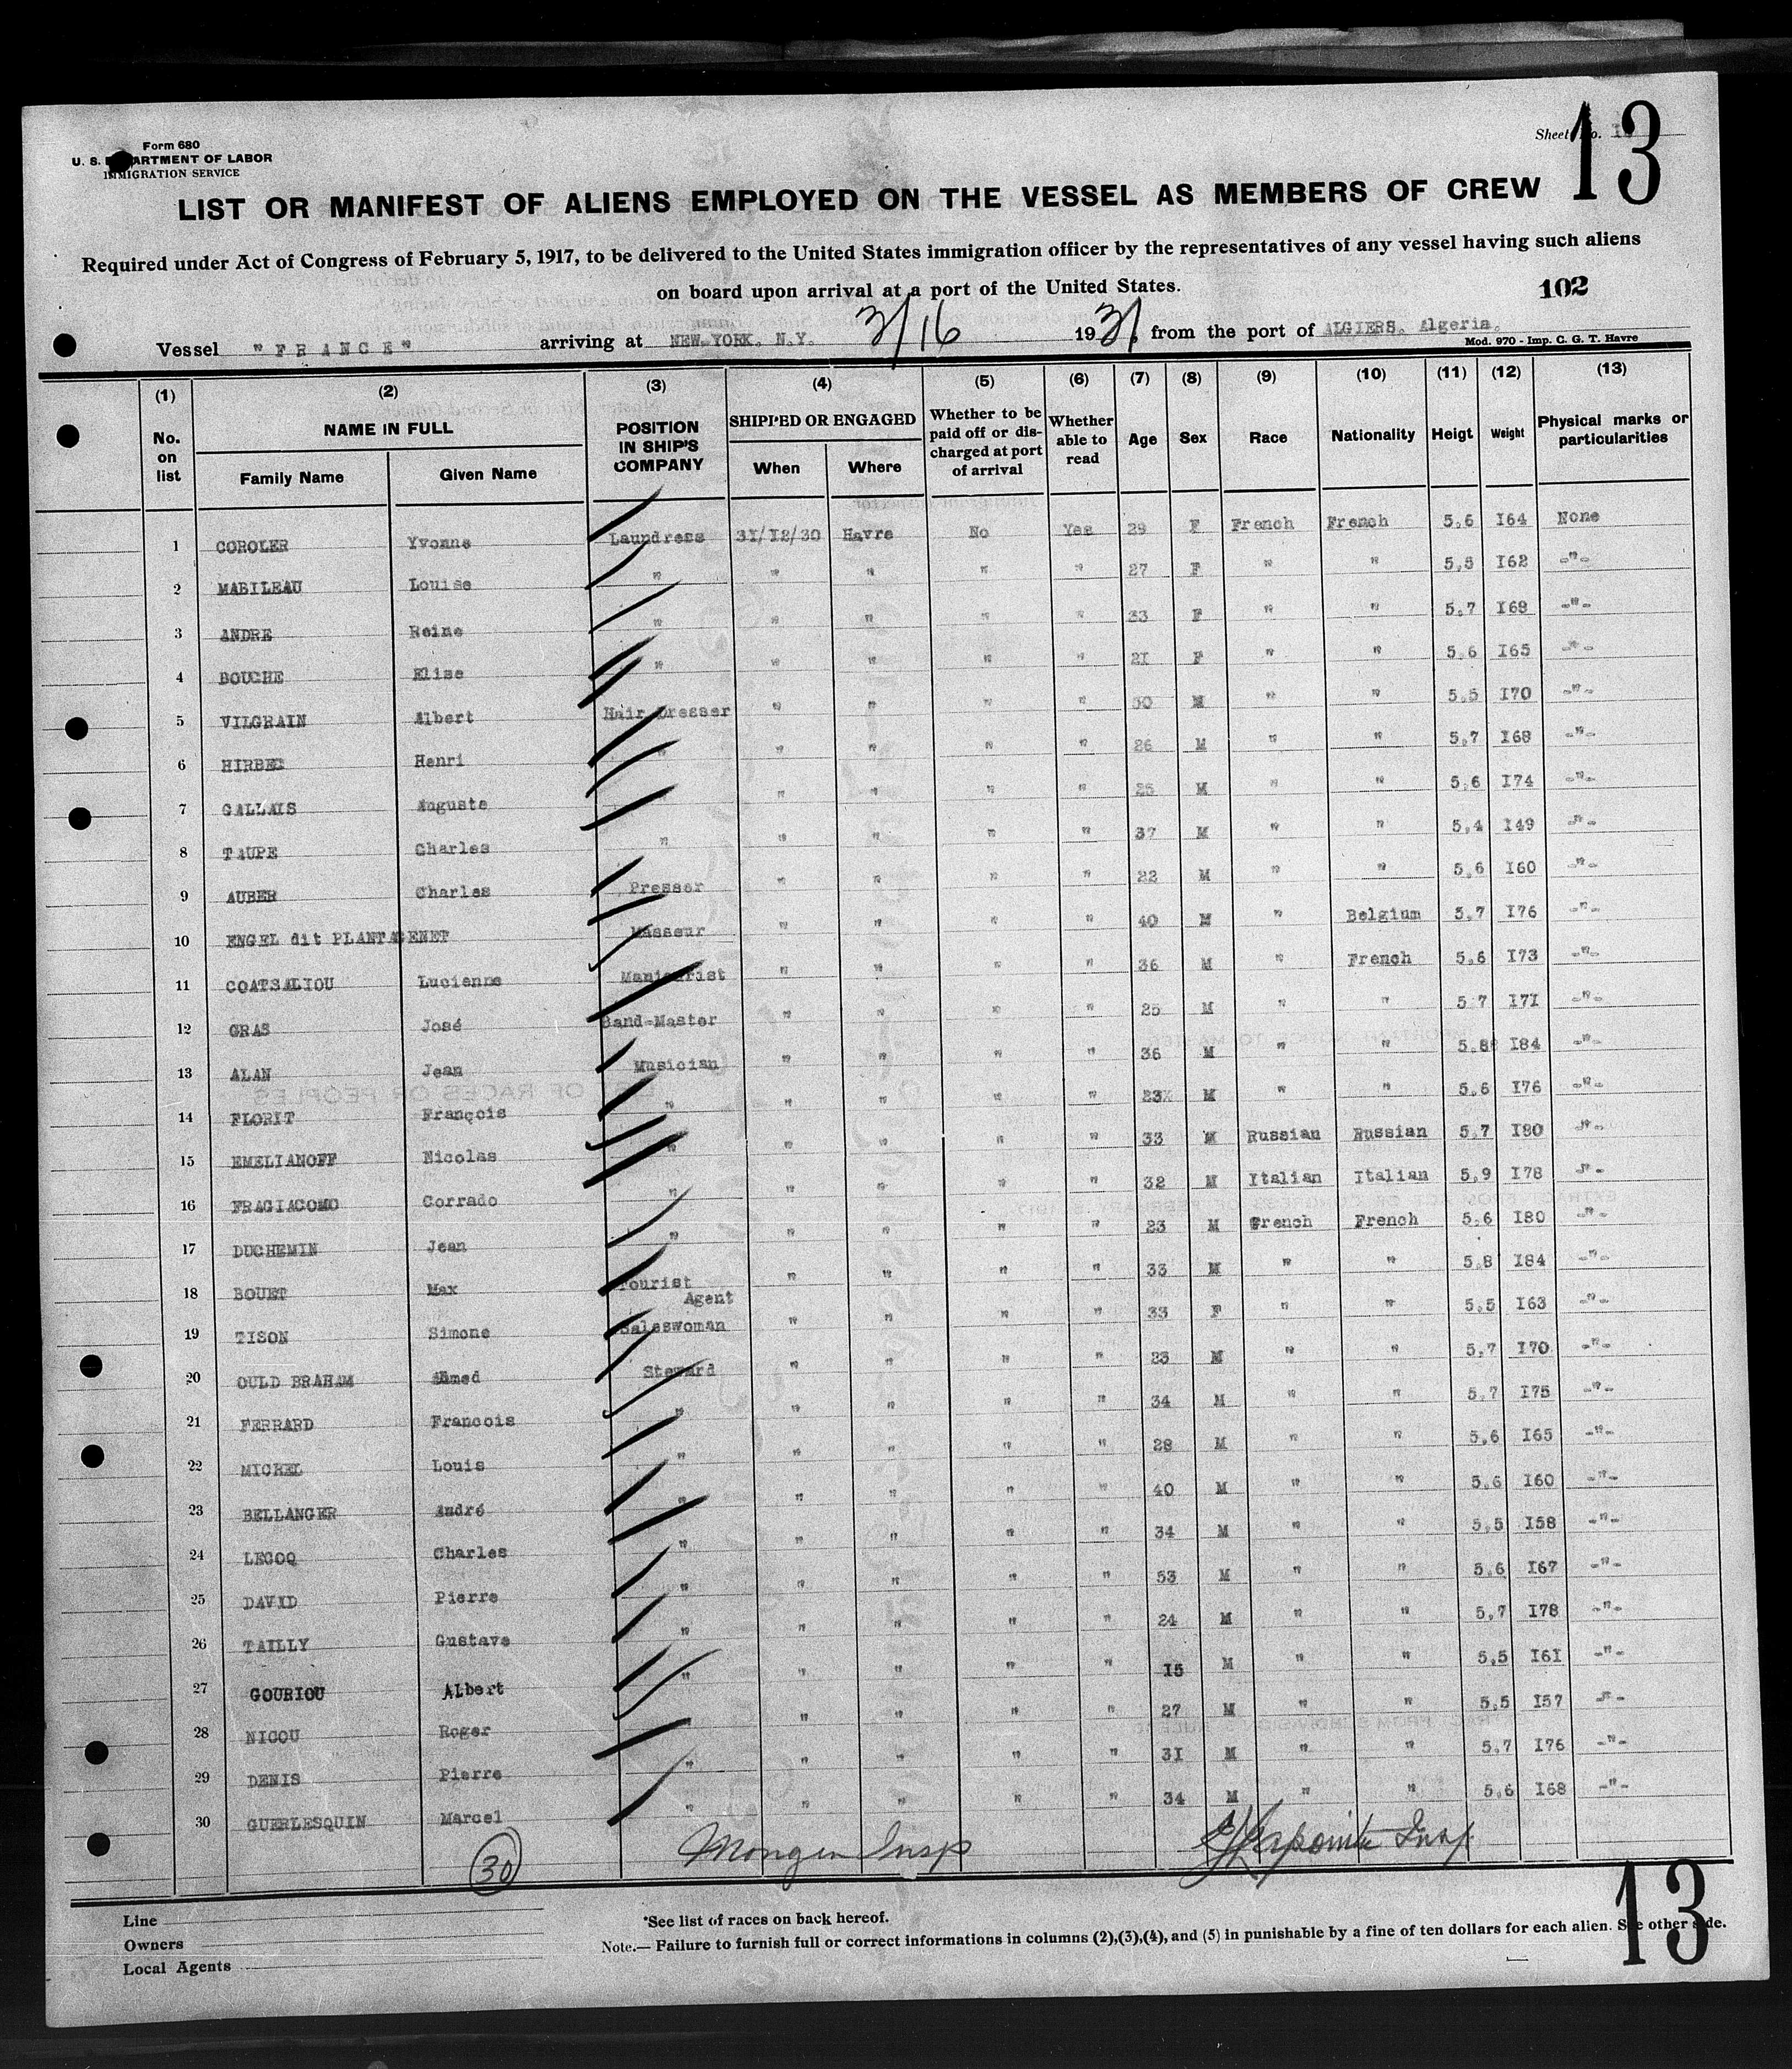 Form 680
U. S. DEPARTMENT OF LABOR
IMMIGRATION SERVICE
Sheet No.
13
LIST OR MANIFEST OF ALIENS EMPLOYED ON THE VESSEL AS MEMBERS OF CREW
Required under Act of Congress of February 5, 1917, to be delivered to the United States immigration officer by the representatives of any vessel having such aliens
on board upon arrival at a port of the United States.
102
Vessel "FRANCE" arriving at NEW YORK. N.Y. 3/16 1931, from the port of ALGIERS. Algeria.
Mod. 970 - Imp. C. G. T. Havre
(1) (2) (3) (4) (5) (6) (7) (8) (9) (10) (11) (12) (13)
No. on list NAME IN FULL Family Name Given Name POSITION IN SHIP'S COMPANY SHIPPED OR ENGAGED When Where Whether to be paid off or discharged at port of arrival Whether able to read Age Sex Race Nationality Heigt Weight Physical marks or particularities
1 COROLER Yvonne Laundress 31/12/30 Havre No Yes 29 F French French 5,6 I64 None
2 MABILEAU Louise " " " " " 27 F " " 5,5 I62 -"-
3 ANDRE Reine " " " " " 33 F " " 5,7 I68 -"-
4 BOUCHE Elise " " " " " 2I F " " 5,6 I65 -"-
5 VILGRAIN Albert Hair Dresser " " " " 30 M " " 5,5 I70 -"-
6 HIRBEC Henri " " " " " 26 M " " 5,7 I68 -"-
7 GALLAIS Auguste " " " " 25 M " " 5,6 I74 -"-
8 TAUPE Charles " " " " " 37 M " " 5,4 I49 -"-
9 AUBER Charles Presser " " " " 22 M " " 5,6 I60 -"-
10 ENGEL dit PLANTAGENET Masseur " " " " 40 M " Belgium 5,7 I76 -"-
11 COATSALIOU Lucienne Manicurist " " " " 36 M " French 5,6 I73 -"-
12 GRAS José Band-Master " " " " 25 M " " 5 7 I7I -"-
13 ALAN Jean Musician " " " " 36 M " " 5,8 I84 -"-
14 FLORIT François " " " " " 23 M " " 5,6 I76 -"-
15 EMELIANOFF Nicolas " " " " " 33 M Russian Russian 5,7 I80 -"-
16 FRAGIACOMO Corrado " " " " " 32 M Italian Italian 5,9 I78 -"-
17 DUCHEMIN Jean " " " " " 23 M French French 5,6 I80 -"-
18 BOUET Max Tourist Agent " " " " 33 M " " 5,8 I84 -"-
19 TISON Simone Saleswoman " " " " 33 F " " 5,5 I63 -"-
20 OULD BRAHAM Ahmed Steward " " " " 23 M " " 5,7 I70 -"-
21 FERRARD Francois " " " " " 34 M " " 5,7 I75 -"-
22 MICHEL Louis " " " " " 28 M " " 5,6 I65 -"-
23 BELLANGER André " " " " " 40 M " " 5,6 I60 -"-
24 LECOQ Charles " " " " " 34 M " " 5,5 I58 -"-
25 DAVID Pierre " " " " " 53 M " " 5,6 I67 -"-
26 TAILLY Gustave " " " " " 24 M " " 5,7 I78 -"-
27 GOURIOU Albert " " " " " I5 M " " 5,5 I6I -"-
28 NICOU Roger " " " " 27 M " " 5,5 I57 -"-
29 DENIS Pierre " " " " " 3I M " " 5,7 I76 -"-
30 GUERLESQUIN Marcel " " " " " 34 M " " 5,6 I68 -"-
30 Mongen Insp Lapointe Insp
Line
Owners
Local Agents
*See list of races on back hereof.
Note.— Failure to furnish full or correct informations in columns (2),(3),(4), and (5) in punishable by a fine of ten dollars for each alien. See other side.
13